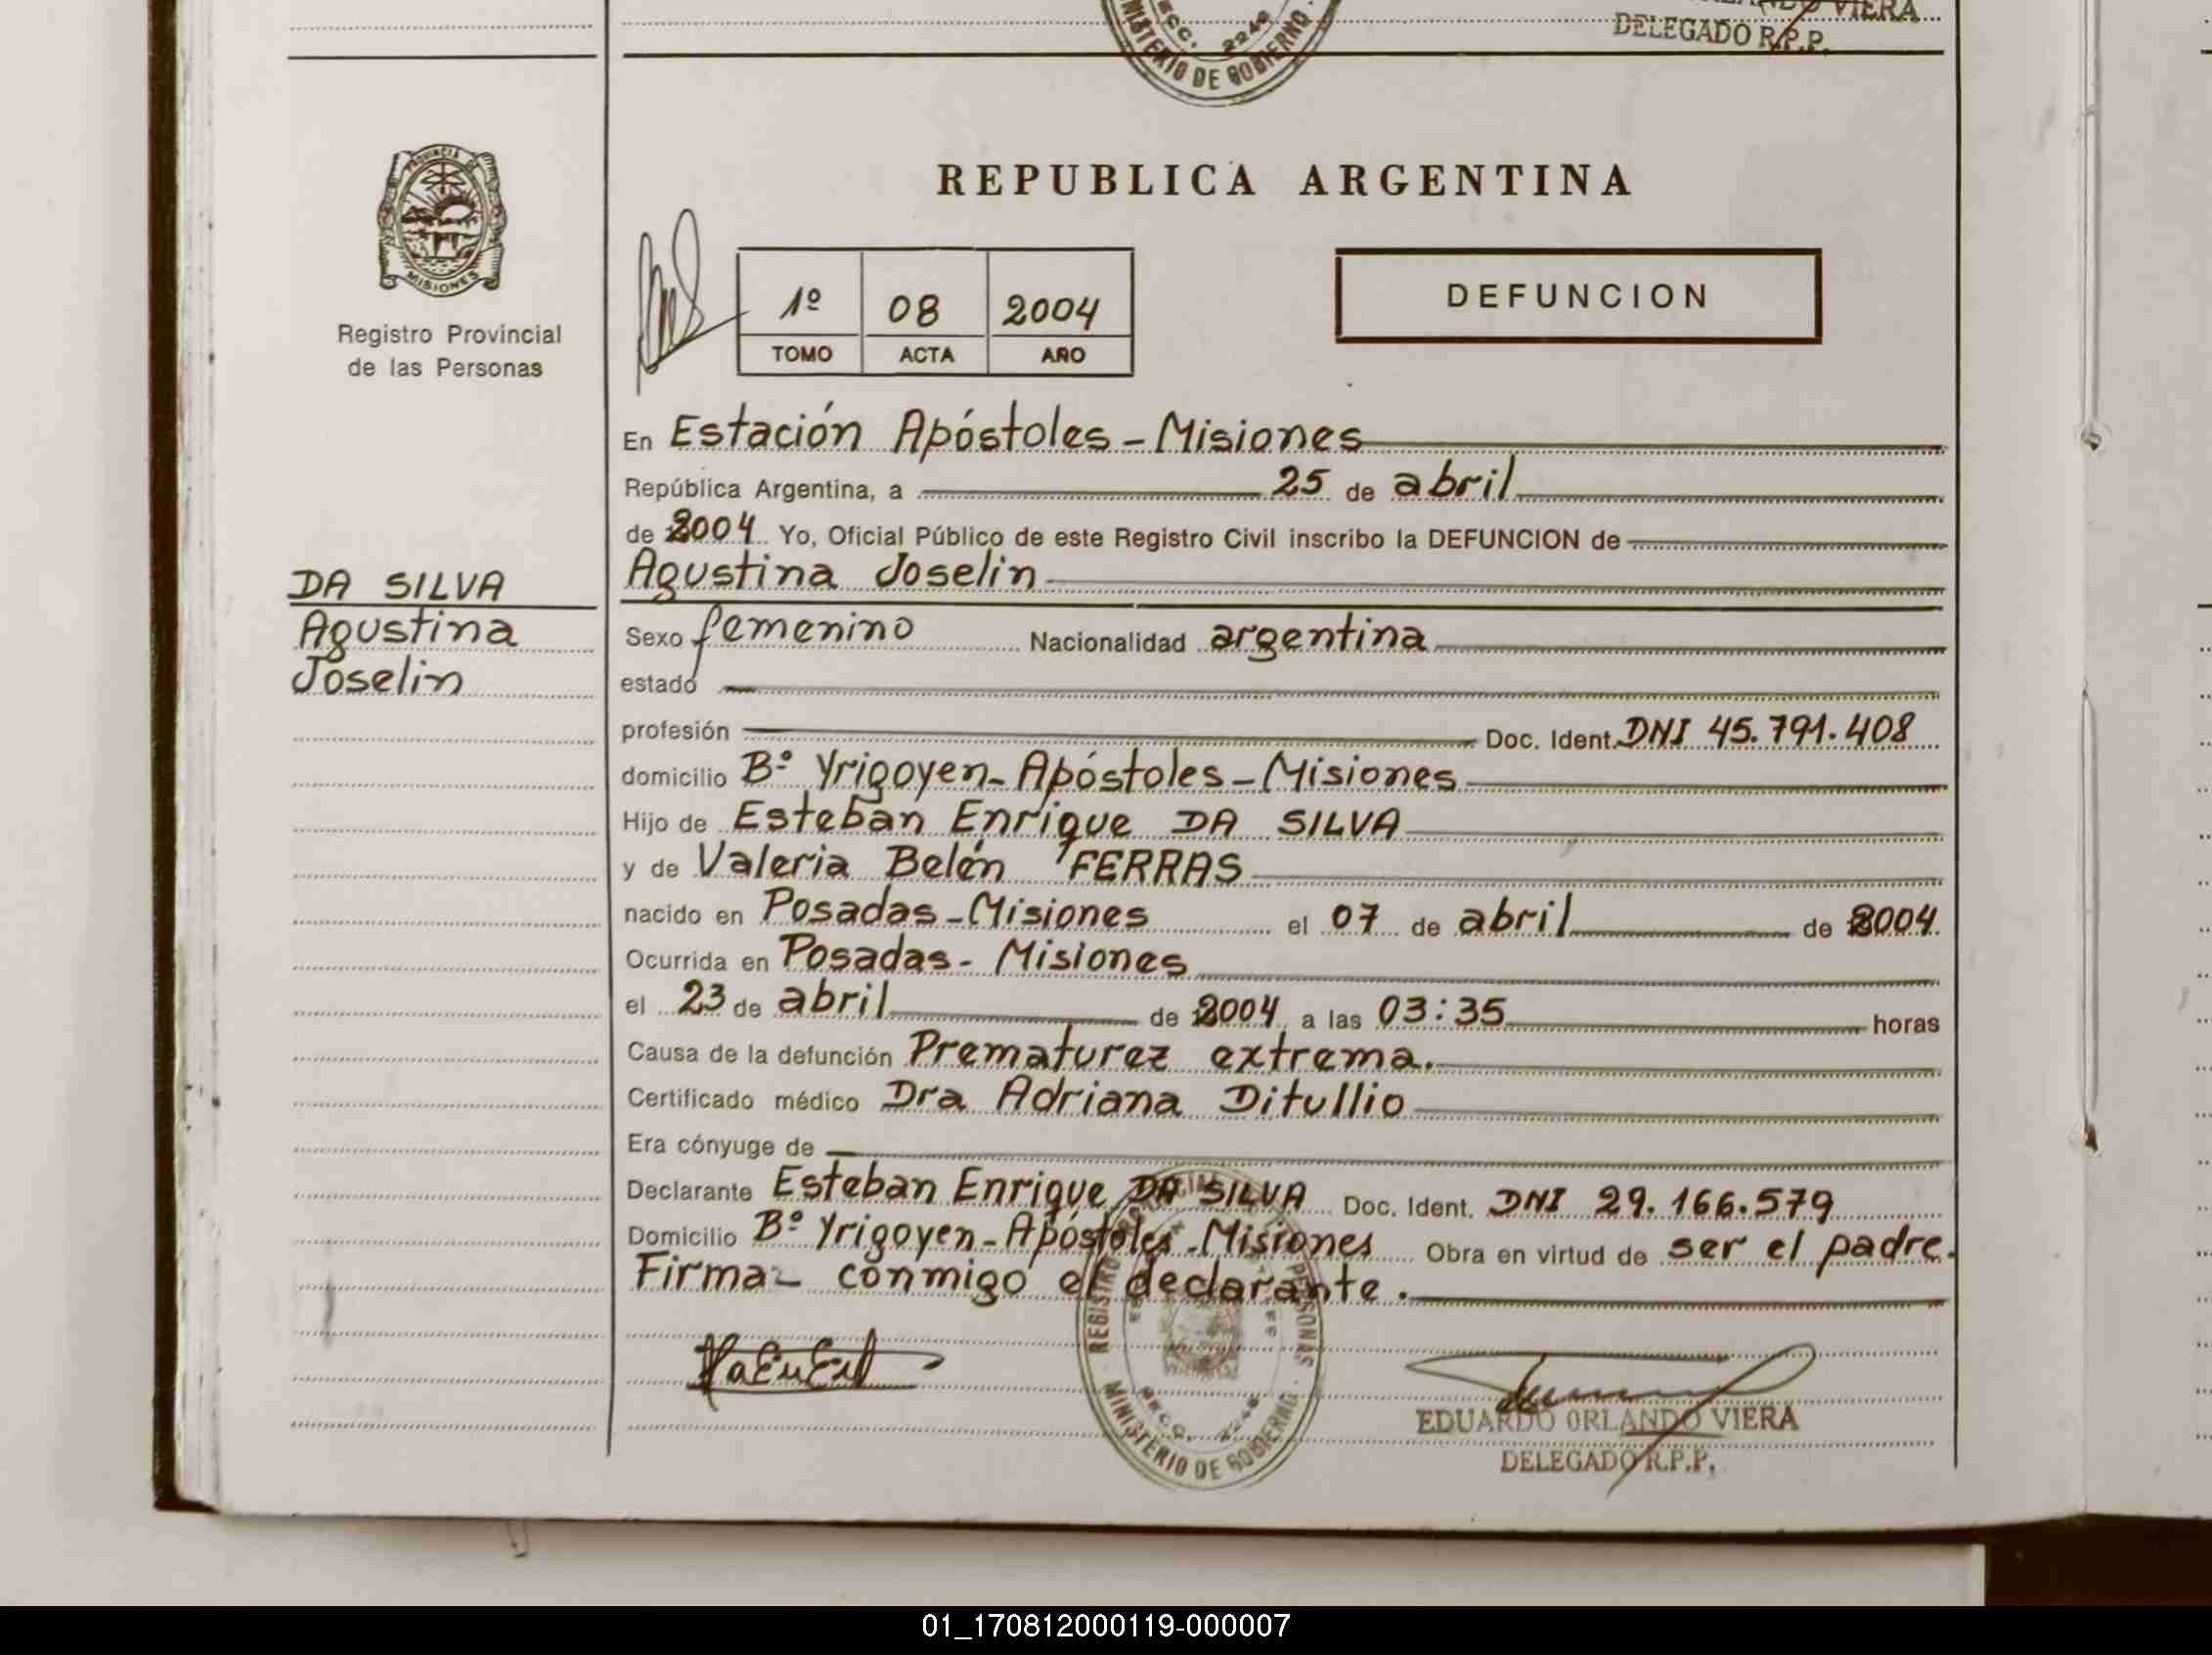 VIERA
DELEGADO R.P.P.
MINISTERIO DE GOBIERNO
REPUBLICA ARGENTINA
PROVINCIA DE
MISIONES
Registro Provincial
de las Personas
1º 08 2004
TOMO ACTA AÑO
DEFUNCION
En Estación Apóstoles - Misiones
República Argentina, a 25 de abril
de 2004 Yo, Oficial Público de este Registro Civil inscribo la DEFUNCION de
DA SILVA
Agustina
Joselin
Agustina Joselin
Sexo femenino Nacionalidad argentina
estado
profesión Doc. Ident. DNI 45.791.408
domicilio Bº Yrigoyen - Apóstoles - Misiones
Hijo de Esteban Enrique DA SILVA
y de Valeria Belén FERRAS
nacido en Posadas - Misiones el 07 de abril de 2004
Ocurrida en Posadas - Misiones
el 23 de abril de 2004 a las 03:35 horas
Causa de la defunción Prematurez extrema.
Certificado médico Dra Adriana Ditullio
Era cónyuge de
Declarante Esteban Enrique DA SILVA Doc. Ident. DNI 29.166.579
Domicilio Bº Yrigoyen - Apóstoles - Misiones Obra en virtud de ser el padre.
Firma - conmigo el declarante.
REGISTRO PERSONAS
MINISTERIO DE GOBIERNO
EDUARDO ORLANDO VIERA
DELEGADO R.P.P.
01_170812000119-000007